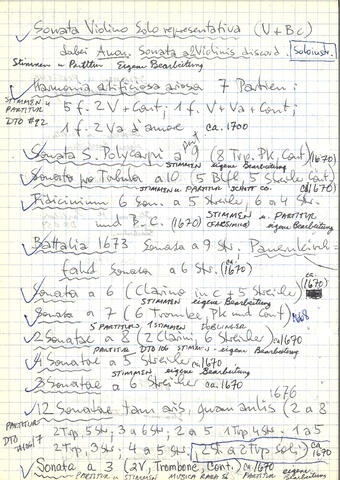 ✓ Sonata Violino Solo representativa (V + Bc)
dabei Anon. Sonata al Violinis discord. Soloinstr.
Stimmen u Partitur Eigene Bearbeitung
✓ Harmonia artificiosa ariosa 7 Partien:
STIMMEN U PARTITUR DTO #92
5 f. 2 V + Cont; 1 f. V + Va + Cont;
1 f. 2 Va d'amore ca. 1700
✓ Sonata S. Polycarpi a 9 (8 Trp. Pk, Cont) (1670)
STIMMEN eigene Bearbeitung
✓ Sonata pro Tabula a 10 (5 Blfl, 5 Streiche Cont) (1670)
STIMMEN U PARTITUR SCHOTT CO.
✓ Fidicinium 6 Son. a 5 Streiche, 6 a 4 Str.
und B.C. (1670) STIMMEN u. PARTITUR
(FACSIMILE) eigene Bearbeitung
✓ Battalia 1673 Sonata a 9 Str. Pauernkirch-
fahrt Sonata a 6 Str. (ca. 1670)
✓ Sonata a 6 (Clarino in C + 5 Streiche) (ca. 1670)
STIMMEN eigene Bearbeitung
✓ Sonata a 7 (6 Trombe, Pk und Cont) 1668
5 PARTITUR 1 STIMMEN DOBLINGER
✓ 2 Sonatae a 8 (2 Clarini, 6 Streiche) ca 1670
PARTITUR DTO 106 STIMMEN eigene Bearbeitung
✓ 4 Sonatae a 5 Streiche ca. 1670
STIMMEN eigene Bearbeitung
✓ 3 Sonatae a 6 Streiche ca 1670
1670
✓ 12 Sonatae tam aris, quam aulis (2 a 8
PARTITUR DTO
2 Trp, 5 Str, 3 a 6 Str, 2 a 5 1 Trp 4 Str. 1 a 5
2 Trp, 3 Str; 4 a 5 Str. 2 St a 2 Trp Solo ca 1670
✓ Sonata a 3 (2V, Trombone, Cont.) ca 1670
PARTITUR u STIMMEN MUSICA RARA PARTITUR eigene Bearbeitung